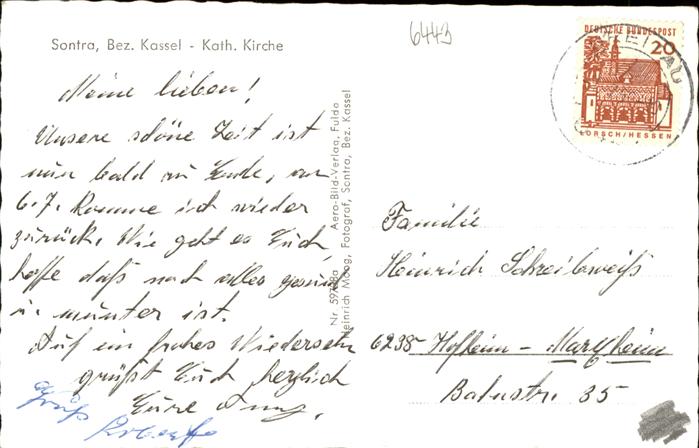 Sontra, Bez. Kassel - Kath. Kirche
6443
Meine lieben!
Unsere schöne Zeit ist
nun bald zu Ende, am
6.7. komme ich wieder
zurück. Wie geht es Euch,
hoffe daß noch alles gesund
u. munter ist.
Auf ein frohes Wiedersehn
grüßt Euch herzlich
Eure
Gruß
Nr. Aero-Bild-Verlag, Fulda
Heinrich Moog, Fotograf, Sontra, Bez. Kassel
DEUTSCHE BUNDESPOST
20
LORSCH/HESSEN
Familie
Heinrich Schreibweiß
6238 Hofheim - Marxheim
Bahnstr. 35